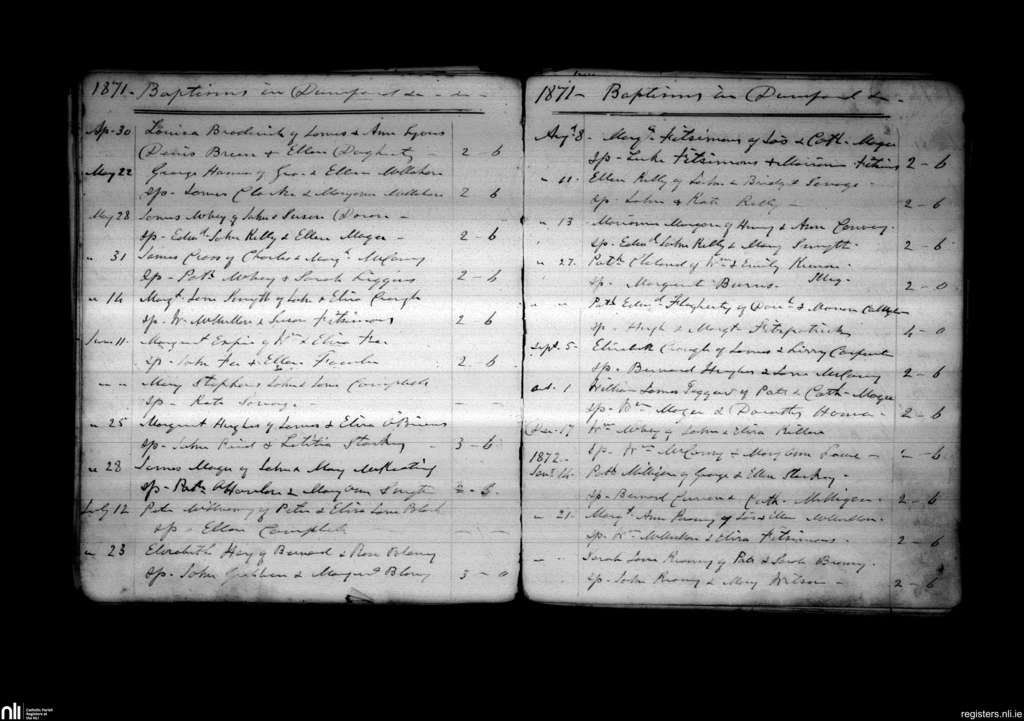 1871 - Baptisms in Dunsford &c - &c -
Ap - 30 Louisa Broderick of James & Ann Lyons
Denis Breen & Ellen Dougherty - 2 - 6
May 22 George Hanna of Geo - & Ellen McMahon
Sp - James Clarke & Maryann McMahon 2 6
May 28 James of John & Susan Doran -
Sp - Edwd John Kelly & Ellen Magee - 2 - 6
" 31 James Cross of Charles & Margt McCavey
Sp - Patk & Sarah 2 - 6
" 14 Margt Jane Smyth of John & Eliza Creagh
Sp. Wm McMullen & Susan Fitsimons 2 6
June 11 - Margaret of Wm & Eliza Fee
Sp - John Fee & Ellen 2 - 6
" " Mary Stephens John & Jane Campbell
Sp - Kate - -
" 25 Margaret Hughes of James & Eliza O'Briens
Sp - John Reid & Letitia Starkey 3 - 6
" 28 James Magee of John & Mary McKeating
Sp - Patk O'Hanlon & Maryann Smyth 2 - 6
July 12 Peter of Peter & Eliza Jane Black
Sp - Ellen Campbell - -
" 23 Elizabeth Hoy of Bernard & Rose Blaney
Sp. John & Margaret Blaney 3 - 0
1871 - Baptisms in Dunsford &c -
Augt 8 - Margt Fitsimons of Jas & Cath - Magee
Sp - Luke Fitsimons & Fitsims 2 - 6
" 11 - Ellen Kelly of John & Bridget Savage -
Sp. John & Kate Kelly - 2 - 6
" 13 - Marianne of Henry & Ann Convey.
Sp. Edwd John Kelly & Mary Smyth - 2 - 6
" 27. Patk Cleland of Wm & Emily
Sp - Margaret Burns - Illeg - 2 - 0
" " Patk Edwd Flagherty of Danl &
Sp - Hugh & Margt Fitzpatrick 4 - 0
Sept - 5 - Elizabeth Creagh of James & Lizzy Carpenter
Sp. Bernard Hughes & Jane McCavey 2 - 6
Oct. 1 William James Taggart of Patk & Cath - Magee
Sp - Wm Magee & Dorothy Hanna - 2 - 6
Dec - 17 Wm of John & Eliza Killen
1872 - Sp. Wm McCavey & Mary Ann - 2 - 6
Jany 14 - Patk Milligan of George & Ellen Starkey -
Sp - Bernard Curran & Cath - Milligan - 2 - 6
" 21 - Margt Ann of Jas & Ellen McMullen -
Sp. Wm McMullen & Eliza Fitsimons - 2 - 6
- Sarah Jane of Patk & Sarah
Sp. John & Mary Wilson - 2 - 6
nli
Catholic Parish
Registers at
the NLI
registers.nli.ie